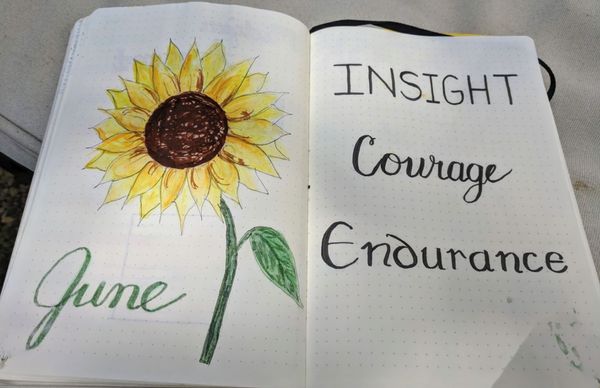 June
INSIGHT
Courage
Endurance